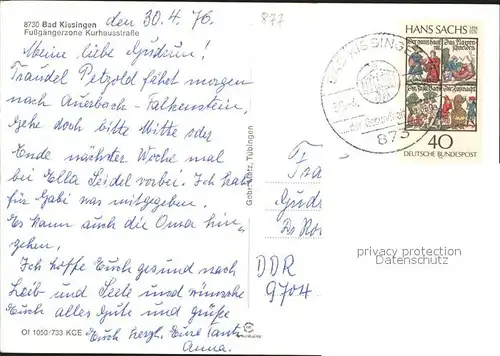 8730 Bad Kissingen
Fußgängerzone Kurhausstraße
den 30.4.76.
877
Meine liebe Gudrun!
Traudel Petzold fährt morgen
nach Auerbach-Falkenstein,
Gehe doch bitte Mitte oder
Ende nächster Woche mal
bei Ella Seidel vorbei. Ich habe
für Gabi was mitgegeben.
Es kann auch die Oma hin-
gehen.
Ich hoffe Euch gesund nach
Leib und Seele und wünsche
Euch alles Gute und grüße
Euch herzl. Eure Tante
Anna.
Of 1050/733 KCE
Gebr. Metz, Tübingen
BAD KISSINGEN
873
HANS SACHS
40
DEUTSCHE BUNDESPOST
Fra
Gudr
Dr Kor
DDR
9704
privacy protection
VERARBEITUNG